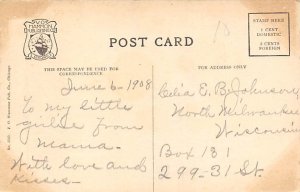 P.V.O.S.
MARMON
PUBLISHING
STAMP HERE
1 CENT
DOMESTIC
2 CENTS
FOREIGN
POST CARD
THIS SPACE MAY BE USED FOR
CORRESPONDENCE
FOR ADDRESS ONLY
June 6 - 1908
To my little
girlie from
Mama.
With love and
Kisses-
Celia E. B. Johnson,
North Milwaukee
Wisconsin
Box 181
299-31 St.